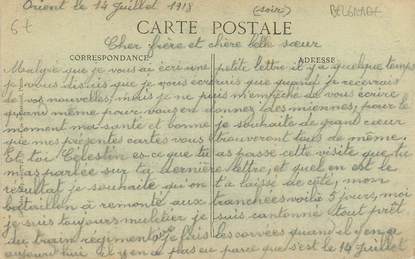 Orient le 14 Juillet 1918 (soire) BELGRADE
6f
CARTE POSTALE
Cher frère et chère belle sœur
CORRESPONDANCE ADRESSE
Malgré que je vous ai écri une petite lettre il y a quelque temps
je vous disais que je vous ecrirais que quand je recevrais
de vos nouvelles, mais je ne puis m'empêché de vous écrire
quand même pour vous en donner des miennes, pour le
moment ma santé et bonne je souhaite de grand cœur
que mes présentes cartes vous trouveront tous de même.
Et toi Celestin es ce que tu as passé cette visite que tu
m'as parlée sur ta dernière lettre, et quel en est le
resultat je souhaite qu'on t'a laissé de côté, mon
bataillon à remonté aux tranchees voilà 5 jours, moi
je suis toujours muletier je suis cantonné tout prêt
du train régimentaire je fais les corvées quand il y en a
aujourd'hui il y en a pas eu parce que s'est le 14 Juillet